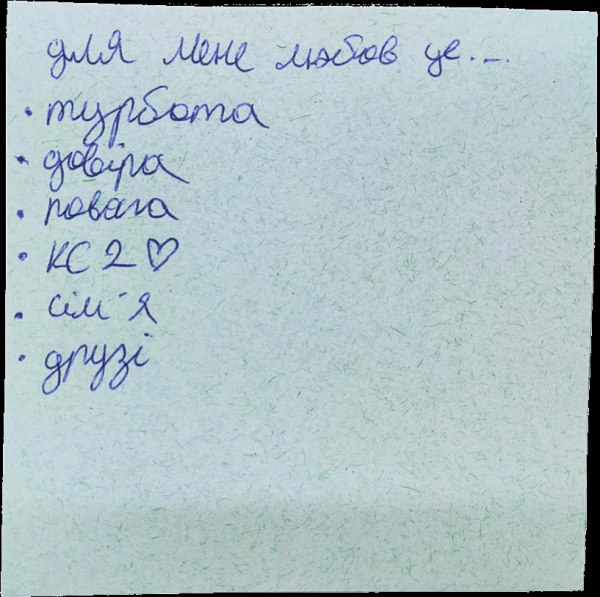 для мене любов це...
· турбота
· довіра
· повага
· КС 2 ♡
· сім'я
· друзі